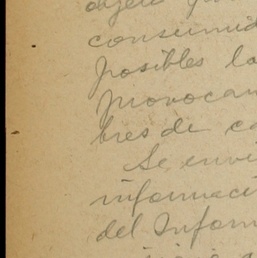 consumid
posibles la
provocan
bres de co
Se envi
informaci
del Inform